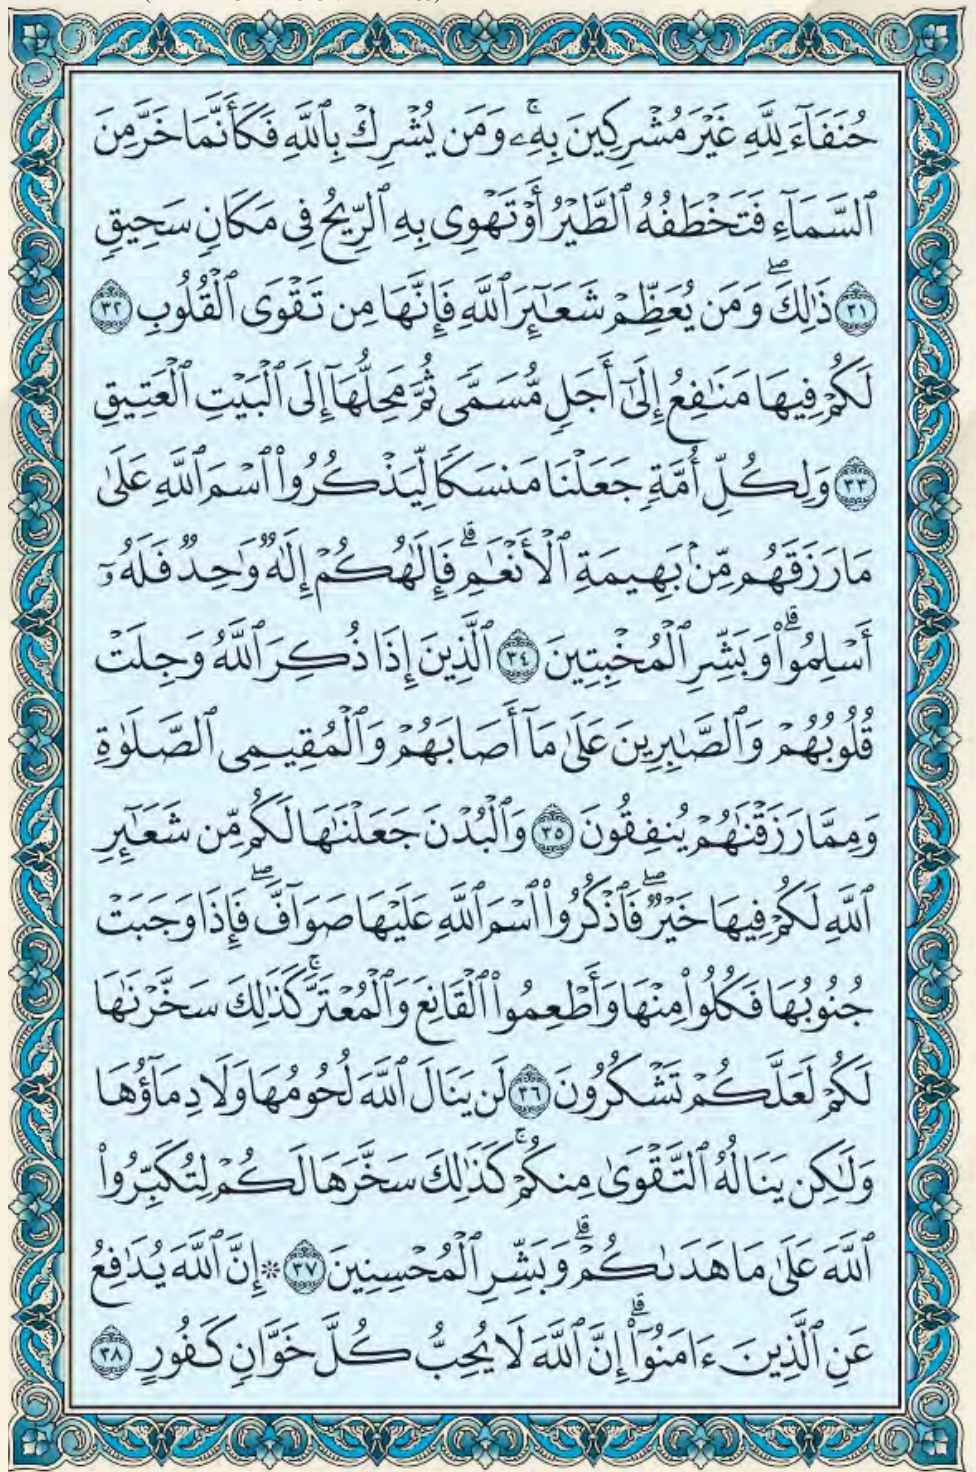 حُنَفَآءَ لِلَّهِ غَيۡرَ مُشۡرِكِينَ بِهِۦۚ وَمَن يُشۡرِكۡ بِٱللَّهِ فَكَأَنَّمَا خَرَّ مِنَ
ٱلسَّمَآءِ فَتَخۡطَفُهُ ٱلطَّيۡرُ أَوۡ تَهۡوِي بِهِ ٱلرِّيحُ فِي مَكَانٖ سَحِيقٖ
٣١ ذَٰلِكَۖ وَمَن يُعَظِّمۡ شَعَـٰٓئِرَ ٱللَّهِ فَإِنَّهَا مِن تَقۡوَى ٱلۡقُلُوبِ ٣٢
لَكُمۡ فِيهَا مَنَـٰفِعُ إِلَىٰٓ أَجَلٖ مُّسَمّٗى ثُمَّ مَحِلُّهَآ إِلَى ٱلۡبَيۡتِ ٱلۡعَتِيقِ
٣٣ وَلِكُلِّ أُمَّةٖ جَعَلۡنَا مَنسَكٗا لِّيَذۡكُرُواْ ٱسۡمَ ٱللَّهِ عَلَىٰ
مَا رَزَقَهُم مِّنۢ بَهِيمَةِ ٱلۡأَنۡعَـٰمِۗ فَإِلَـٰهُكُمۡ إِلَـٰهٞ وَٰحِدٞ فَلَهُۥٓ
أَسۡلِمُواْۗ وَبَشِّرِ ٱلۡمُخۡبِتِينَ ٣٤ ٱلَّذِينَ إِذَا ذُكِرَ ٱللَّهُ وَجِلَتۡ
قُلُوبُهُمۡ وَٱلصَّـٰبِرِينَ عَلَىٰ مَآ أَصَابَهُمۡ وَٱلۡمُقِيمِي ٱلصَّلَوٰةِ
وَمِمَّا رَزَقۡنَـٰهُمۡ يُنفِقُونَ ٣٥ وَٱلۡبُدۡنَ جَعَلۡنَـٰهَا لَكُم مِّن شَعَـٰٓئِرِ
ٱللَّهِ لَكُمۡ فِيهَا خَيۡرٞۖ فَٱذۡكُرُواْ ٱسۡمَ ٱللَّهِ عَلَيۡهَا صَوَآفَّۖ فَإِذَا وَجَبَتۡ
جُنُوبُهَا فَكُلُواْ مِنۡهَا وَأَطۡعِمُواْ ٱلۡقَانِعَ وَٱلۡمُعۡتَرَّۚ كَذَٰلِكَ سَخَّرۡنَـٰهَا
لَكُمۡ لَعَلَّكُمۡ تَشۡكُرُونَ ٣٦ لَن يَنَالَ ٱللَّهَ لُحُومُهَا وَلَا دِمَآؤُهَا
وَلَـٰكِن يَنَالُهُ ٱلتَّقۡوَىٰ مِنكُمۡۚ كَذَٰلِكَ سَخَّرَهَا لَكُمۡ لِتُكَبِّرُواْ
ٱللَّهَ عَلَىٰ مَا هَدَىٰكُمۡۗ وَبَشِّرِ ٱلۡمُحۡسِنِينَ ٣٧ ۞ إِنَّ ٱللَّهَ يُدَٰفِعُ
عَنِ ٱلَّذِينَ ءَامَنُوٓاْۗ إِنَّ ٱللَّهَ لَا يُحِبُّ كُلَّ خَوَّانٖ كَفُورٍ ٣٨